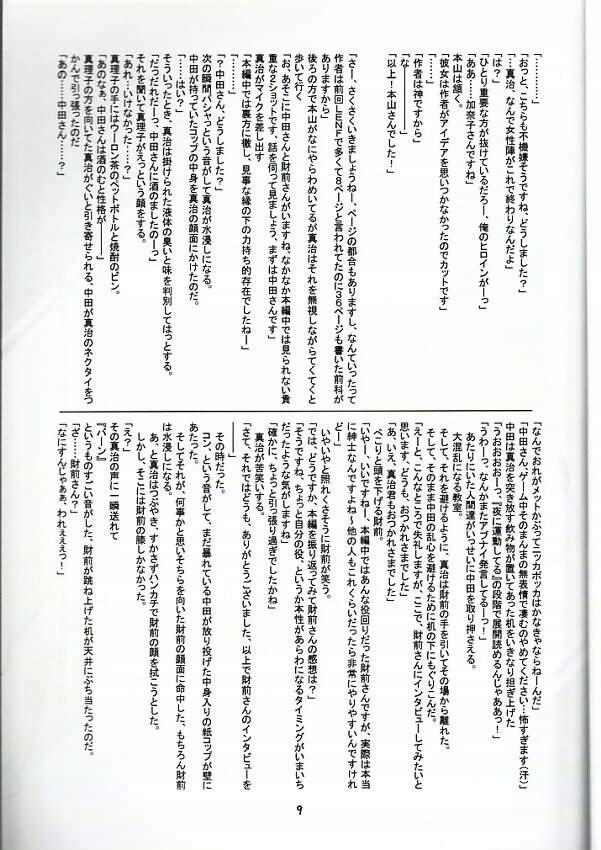 「………」
「おっと、こちらも不機嫌そうですね、どうしました？」
「…真治、なんで女性陣がこれで終わりなんだよ」
「は？」
ひとり重要な方が抜けているだろー、俺のヒロインがーっ」
「ああ……加奈子さんですね」
本山は頷く。
「彼女は作者がアイデアを思いつかなかったのでカットです」
「……」
「作者は神ですから」
「な――――」
「以上！本山さんでした！」
「さー、さくさくいきましょうねー、ページの都合もありますし、なんていったって
作者は前回ＬＥＮＦで多くて８ページと言われてたのに３６ページも書いた前科が
ありますから」
後ろの方で本山がなにやらわめいてるが真治はそれを無視しながらてくてくと
歩いて行く
「お、あそこに中田さんと財前さんがいますね、なかなか本編中では見られない貴
重な２ショットです、話を伺って見ましょう、まずは中田さんです」
真治がマイクを差し出す
「本編中では裏方に徹し、見事な縁の下の力持ち的存在でしたねー」
「………」
「？中田さん、どうしました？」
次の瞬間バシャっという音がして真治が水浸しになる。
中田が持っていたコップの中身を真治の顔面にかけたのだ。
「……はい？」
そういったとき、真治は掛けられた液体の臭いと味を判別してはっとする。
「だっだれだーっ、中田さんに酒のましたのーっ」
それを聞いて真理子がえっという顔をする。
「あれ…いけなかった……？」
真理子の手にはウーロン茶のペットボトルと焼酎のビン。
「あのなぁ、中田さんは酒のむと性格が――――」
真理子の方を向いてた真治がぐいと引き寄せられる、中田が真治のネクタイをつ
かんで引っ張ったのだ
「あの……中田さん……？」
「なんでおれがメットかぶってニッカボッカはかなきゃならねーんだ」
「中田さん、ゲーム中そのまんまの無表情で凄むのやめてください…怖すぎます（汗）」
中田は真治を突き放す飲み物が置いてあった机をいきなり担ぎ上げた
「うおおおおーっ、『夜に運動してる』の段階で展開読めるんじゃああっ！」
「うわーっ、なんかまたアブナイ発言してるーっ！」
あたりにいた人間達がいっせいに中田を取り押さえる。
大混乱になる教室。
そして、それを避けるように、真治は財前の手を引いてその場から離れた。
そして、そのまま中田の乱心を避けるために机の下にもぐりこんだ。
「えーと、こんなところで失礼しますが、ここで、財前さんにインタビューしてみたいと
思います、どうも、おつかれさまでした」
「あ、いえ、真治君もおつかれさまでした」
ぺこりと頭を下げる財前。
「いやー、いいですねー、本編中ではあんな役回りだった財前さんですが、実際は本当
に紳士なんですよね～他の人もこれくらいだったら非常にやりやすいんですけれ
どー」
いやいやと照れくさそうに財前が笑う。
「では、どうですか、本編を振り返ってみて財前さんの感想は？」
「そうですね、ちょっと自分の役、というか本性があらわになるタイミングがいまいち
だったような気がしますね」
「確かに、ちょっと引っ張り過ぎでしたかね」
真治が苦笑いする。
「さて、それではどうも、ありがとうございました、以上で財前さんのインタビューを
――――」
その時だった。
コン、という音がして、まだ暴れている中田が放り投げた中身入りの紙コップが壁に
あたった。
そしてそれが、何事かと思いそちらを向いた財前の顔面に命中した、もちろん財前
は水浸しになる。
あ、と真治はつぶやき、すかさずハンカチで財前の顔を拭こうとした。
しかし、そこには財前の膝しかなかった。
「え？」
その真治の声に一瞬送れて
『バーン』
というものすごい音がした、財前が跳ね上げた机が天井にぶち当たったのだ。
「ざ……財前さん？」
「なにすんじゃぁぁ、われぇぇぇっ！」
9